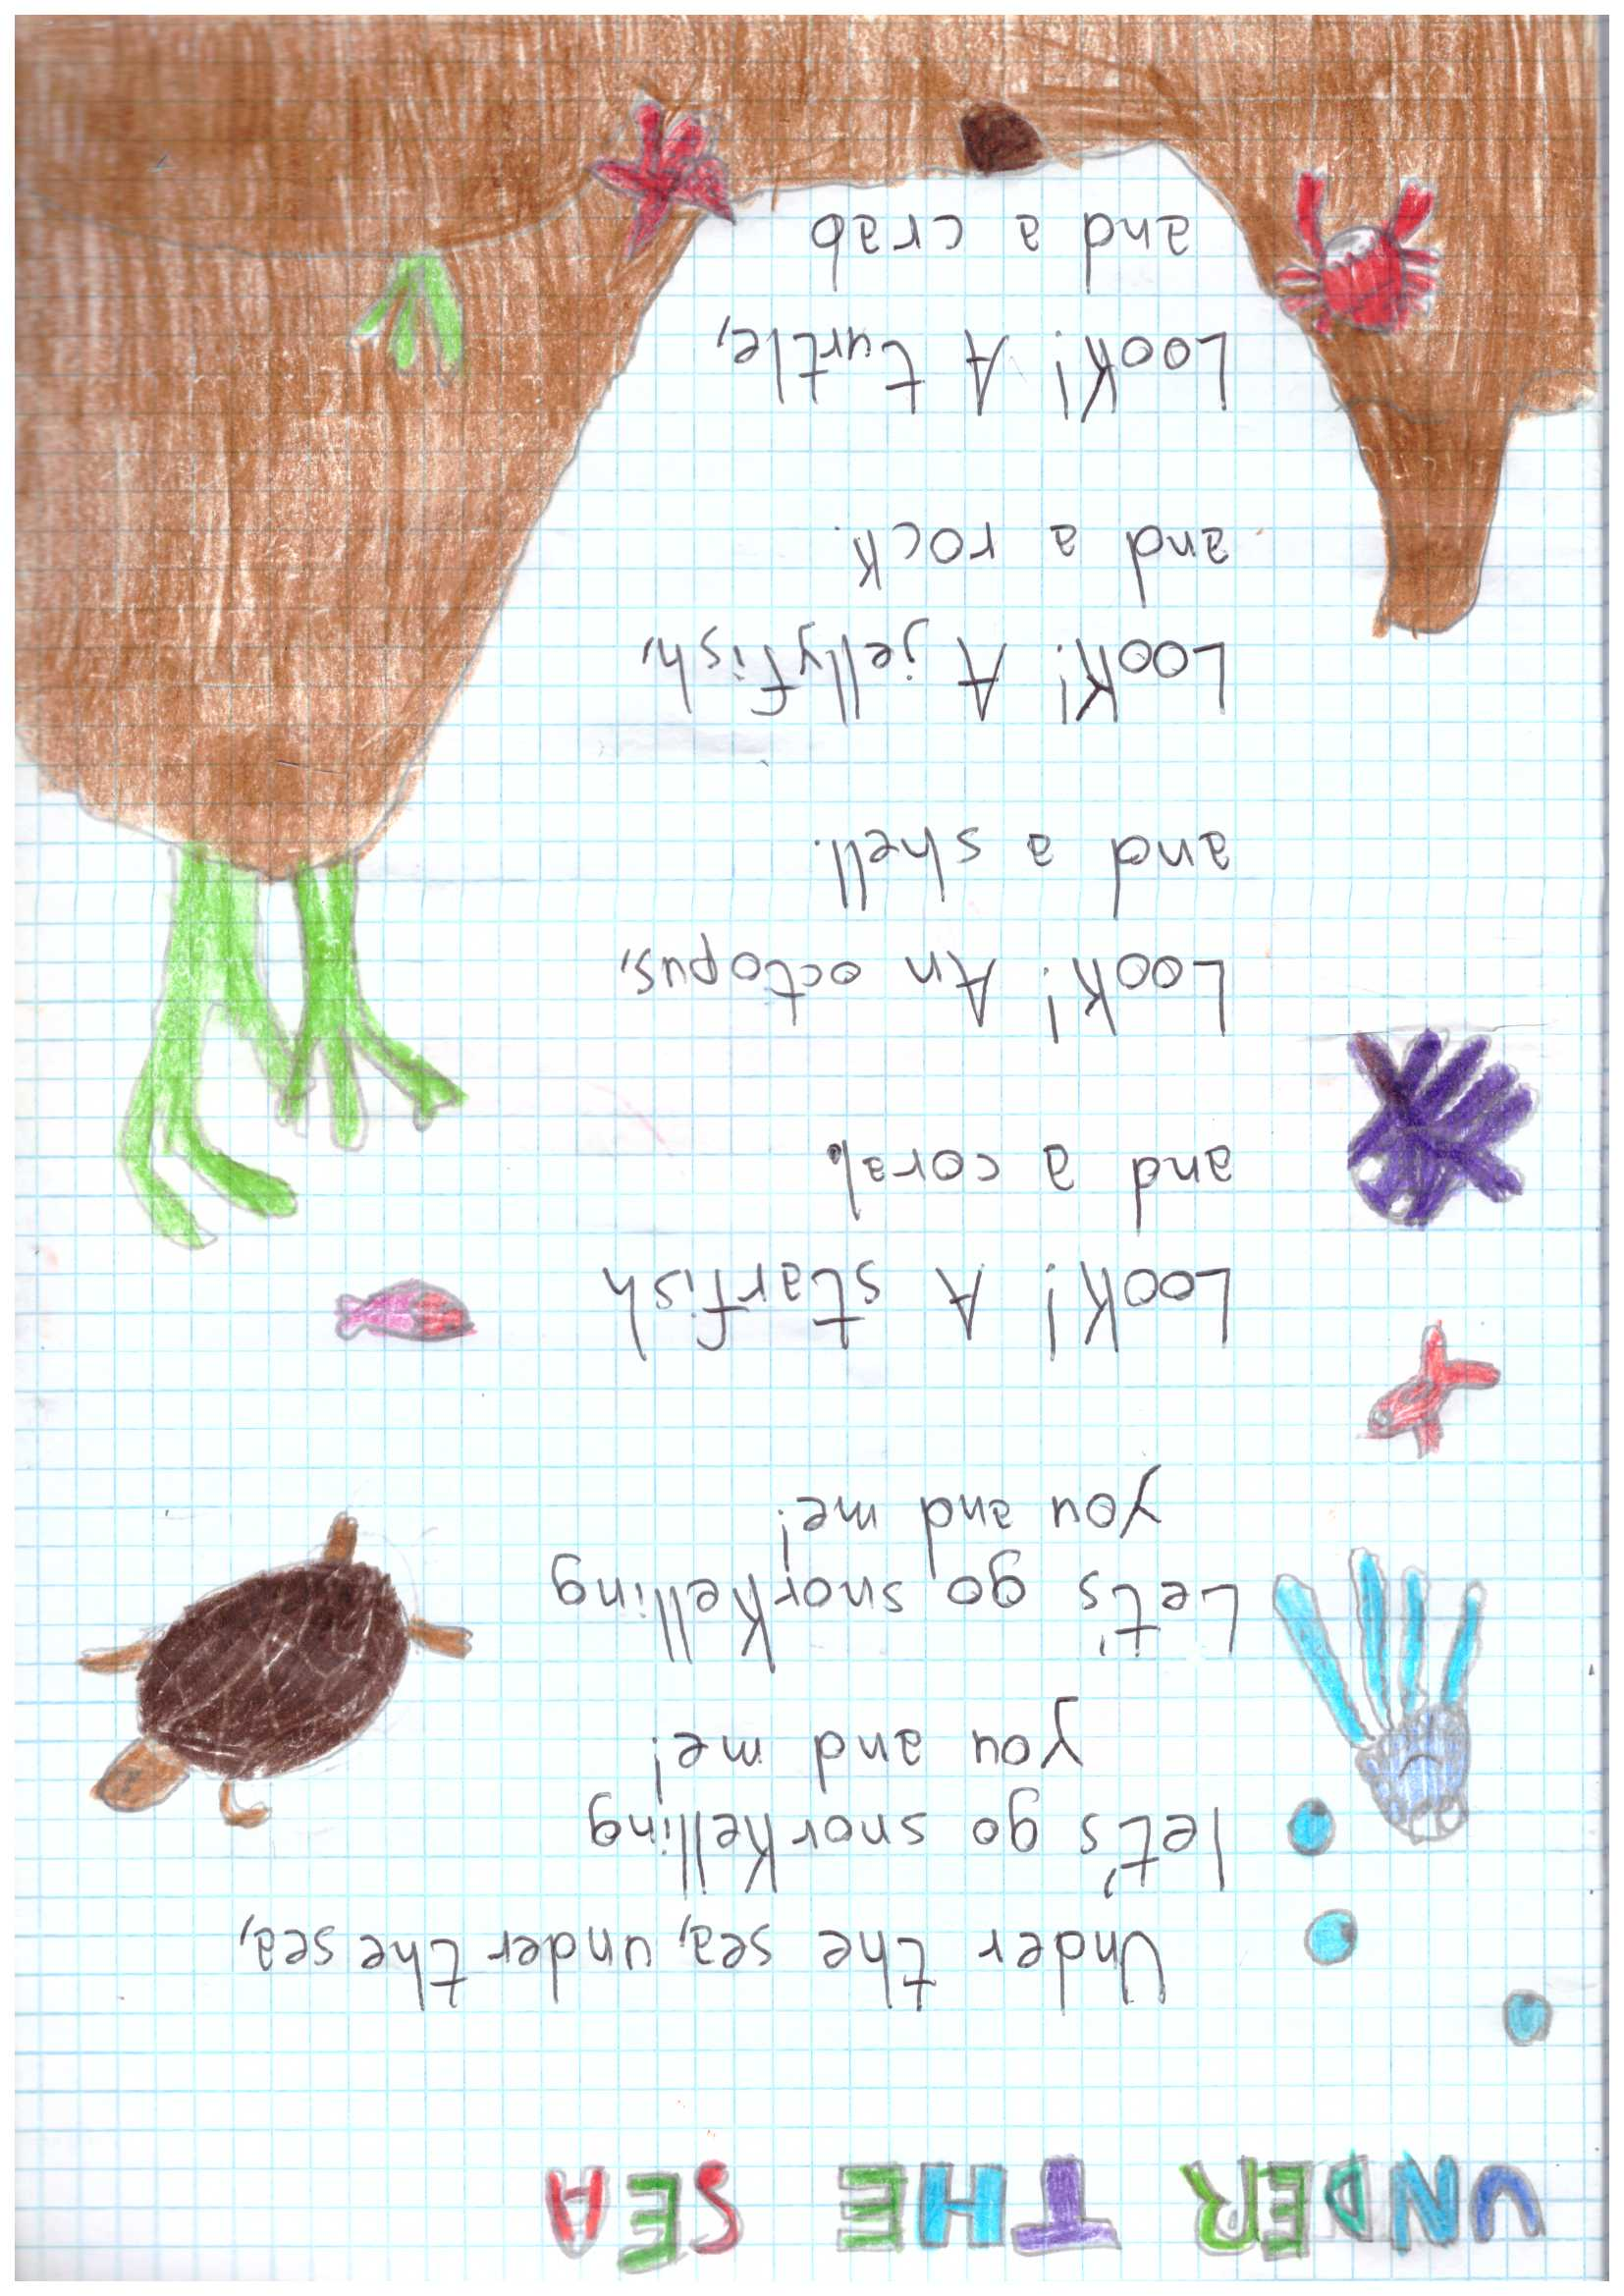 UNDER THE SEA
Under the sea, under the sea,
let's go snorkelling
you and me!
Let's go snorkelling
you and me!
Look! A starfish
and a coral.
Look! An octopus,
and a shell.
Look! A jellyfish,
and a rock.
Look! A turtle,
and a crab